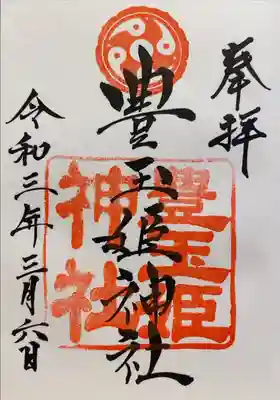 奉拝
豊玉姫神社
豊玉姫
神社
令和三年三月六日